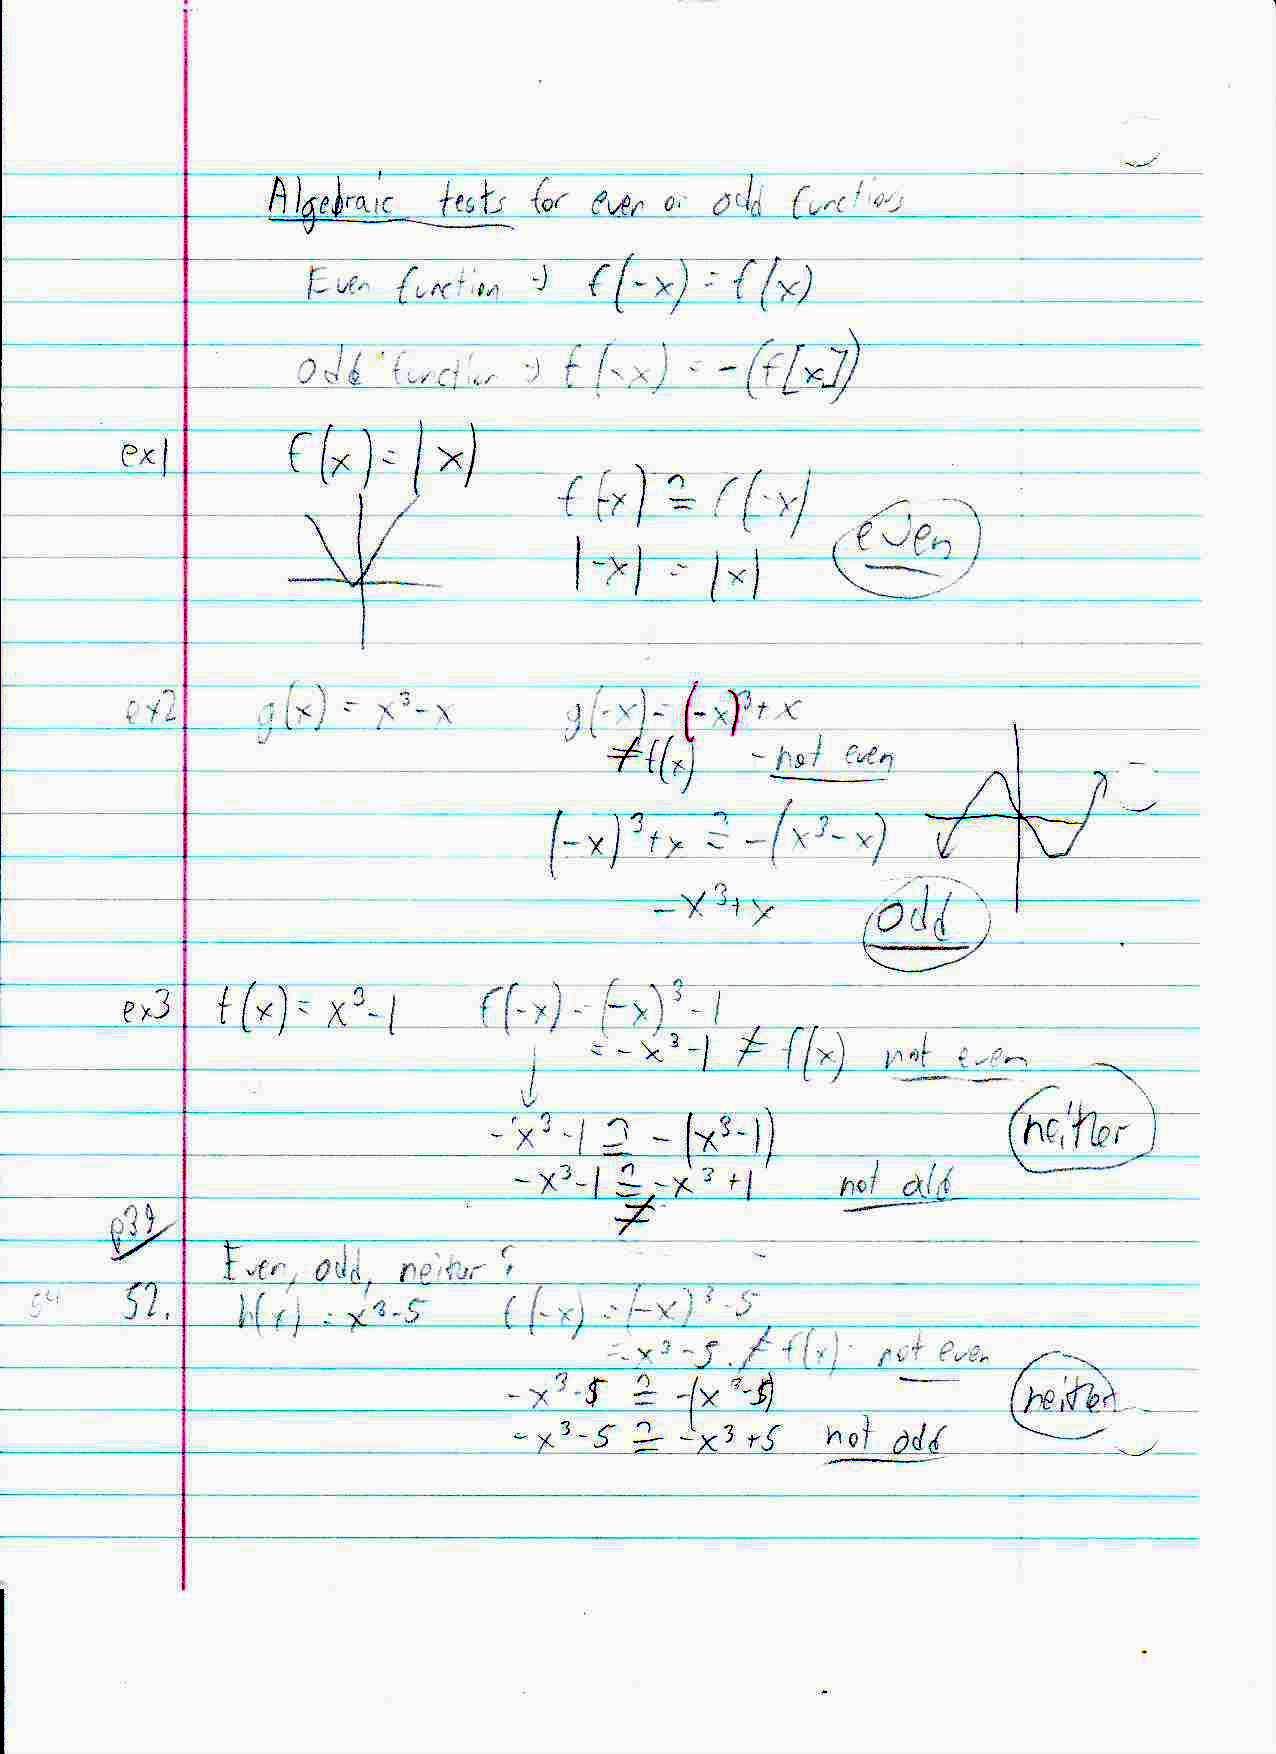 Algebraic tests for even or odd functions
Even function → f(-x) = f(x)
Odd function → f(-x) = -(f[x])
ex1 f(x) = |x|
f(-x) ≟ f(-x)
|-x| = |x| even
ex2 g(x) = x³-x g(-x) = (-x)³+x
≠ f(x) - not even
(-x)³+x ≟ -(x³-x)
-x³+x odd
ex3 f(x) = x³-1 f(-x) = (-x)³-1
= -x³-1 ≠ f(x) not even
-x³-1 ≟ -(x³-1) neither
-x³-1 ≟ -x³+1 not odd
≠
Even, odd, neither?
54 52. h(x) = x³-5 f(-x) = (-x)³-5
= -x³-5 ≠ f(x) not even
-x³-5 ≟ -(x³-5) neither
-x³-5 ≟ -x³+5 not odd